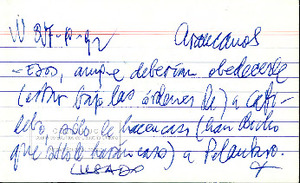 IV 27-10-92 Araucanos
- Esos, aunque deberían obedecerle
(estar bajo las órdenes de) a Cato-
lebo, sólo le hacen caso (han dicho
que sólo le harán caso) a Pelantaro.
(USADO